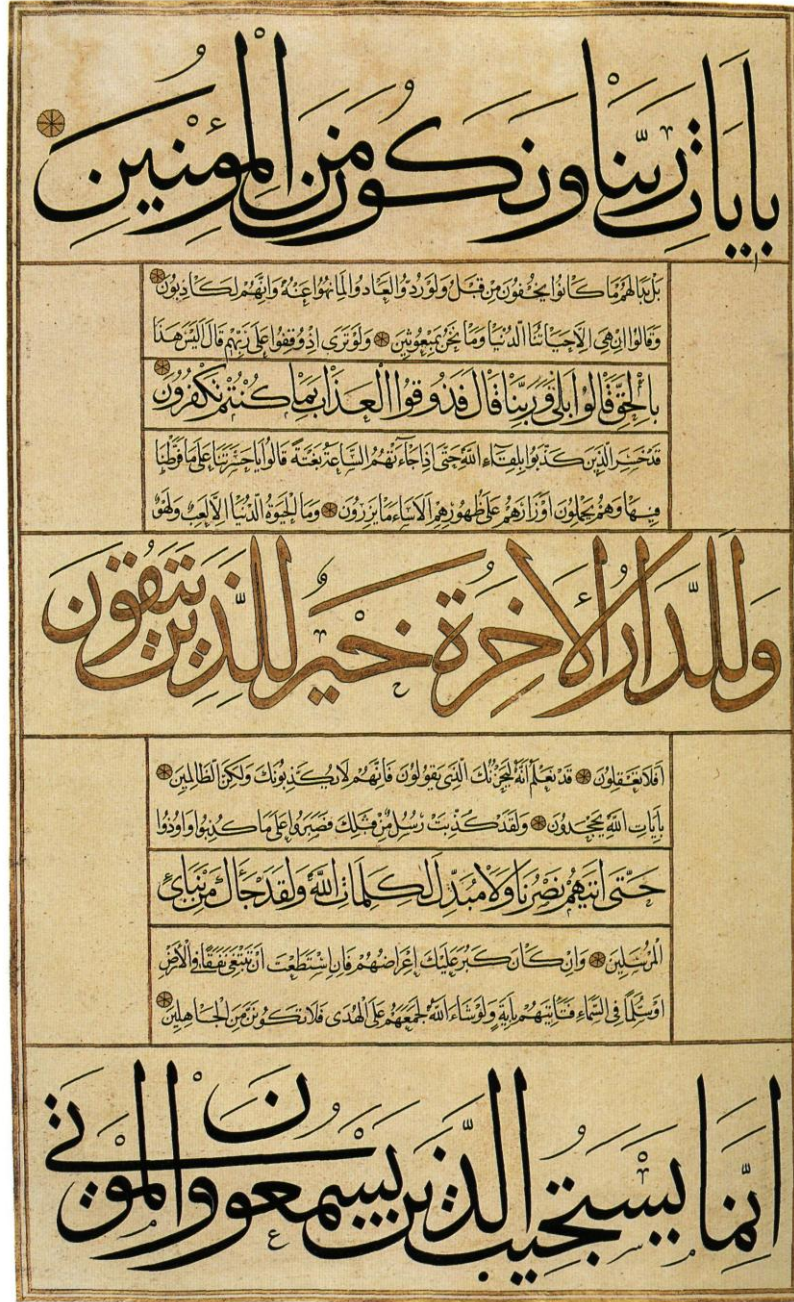 بِآيَاتِ رَبِّنَا وَنَكُونَ مِنَ الْمُؤْمِنِينَ
بَلْ بَدَا لَهُمْ مَا كَانُوا يُخْفُونَ مِنْ قَبْلُ وَلَوْ رُدُّوا لَعَادُوا لِمَا نُهُوا عَنْهُ وَإِنَّهُمْ لَكَاذِبُونَ
وَقَالُوا إِنْ هِيَ إِلَّا حَيَاتُنَا الدُّنْيَا وَمَا نَحْنُ بِمَبْعُوثِينَ وَلَوْ تَرَى إِذْ وُقِفُوا عَلَى رَبِّهِمْ قَالَ أَلَيْسَ هَذَا
بِالْحَقِّ قَالُوا بَلَى وَرَبِّنَا قَالَ فَذُوقُوا الْعَذَابَ بِمَا كُنْتُمْ تَكْفُرُونَ
قَدْ خَسِرَ الَّذِينَ كَذَّبُوا بِلِقَاءِ اللَّهِ حَتَّى إِذَا جَاءَتْهُمُ السَّاعَةُ بَغْتَةً قَالُوا يَا حَسْرَتَنَا عَلَى مَا فَرَّطْنَا
فِيهَا وَهُمْ يَحْمِلُونَ أَوْزَارَهُمْ عَلَى ظُهُورِهِمْ أَلَا سَاءَ مَا يَزِرُونَ وَمَا الْحَيَوةُ الدُّنْيَا إِلَّا لَعِبٌ وَلَهْوٌ
وَلَلدَّارُ الْآخِرَةُ خَيْرٌ لِلَّذِينَ يَتَّقُونَ
أَفَلَا تَعْقِلُونَ قَدْ نَعْلَمُ إِنَّهُ لَيَحْزُنُكَ الَّذِي يَقُولُونَ فَإِنَّهُمْ لَا يُكَذِّبُونَكَ وَلَكِنَّ الظَّالِمِينَ
بِآيَاتِ اللَّهِ يَجْحَدُونَ وَلَقَدْ كُذِّبَتْ رُسُلٌ مِنْ قَبْلِكَ فَصَبَرُوا عَلَى مَا كُذِّبُوا وَأُوذُوا
حَتَّى أَتَيهُمْ نَصْرُنَا وَلَا مُبَدِّلَ لِكَلِمَاتِ اللَّهِ وَلَقَدْ جَاكَ مِنْ نَبَائِ
الْمُرْسَلِينَ وَإِنْ كَانَ كَبُرَ عَلَيْكَ إِعْرَاضُهُمْ فَإِنِ اسْتَطَعْتَ أَنْ تَبْتَغِيَ نَفَقًا فِي الْأَرْضِ
أَوْ سُلَّمًا فِي السَّمَاءِ فَتَأْتِيَهُمْ بِآيَةٍ وَلَوْ شَاءَ اللَّهُ لَجَمَعَهُمْ عَلَى الْهُدَى فَلَا تَكُونَنَّ مِنَ الْجَاهِلِينَ
إِنَّمَا يَسْتَجِيبُ الَّذِينَ يَسْمَعُونَ وَالْمَوْتَى